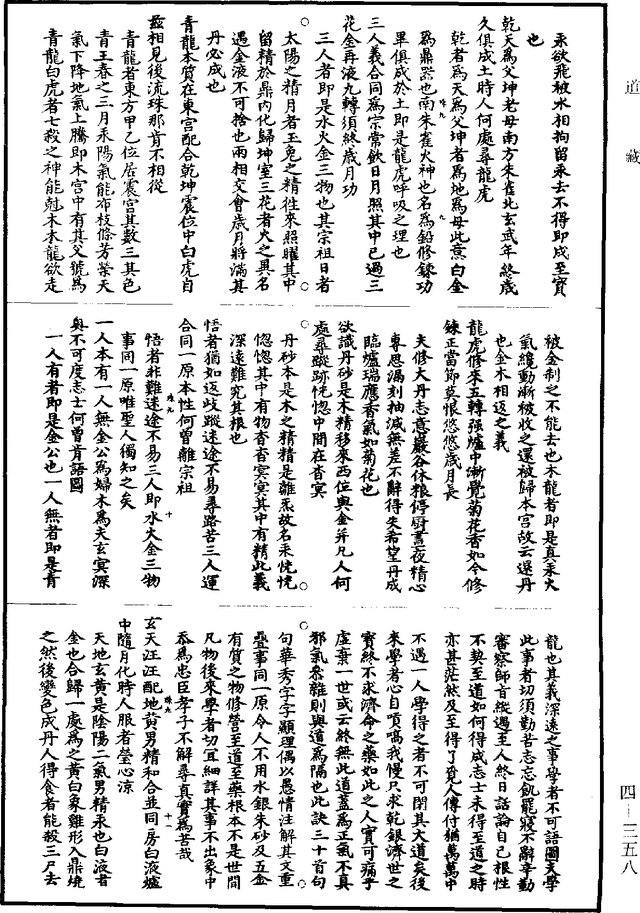 道藏
汞欲飛被水相拘留汞去不得即成至寶
也
乾天為父坤老母南方朱雀北玄武年終歲
久俱成土時人何處尋龍虎
乾者為天為父坤者為地為母此意白金
為鼎器也南朱雀火神也名為鉛修鍊功
畢俱成於土即是龍虎呼吸之理也
三人義合同為宗常飲日月照其中已過三
花金再液九轉須終歲月功
三人者即是水火金三物也其宗祖日者
太陽之精月者玉兔之精往來照曜其中
留精於鼎內化歸坤室三花者火之異名
遇金液不可捨也兩相交會歲月將滿其
丹必成也
青龍本質在東宮配合乾坤震位中白虎自
茲相見後流珠那肯不相從
青龍者東方甲乙位居震宮其數三其色
青王春之三月汞陽氣能布枝條芳榮天
氣下降地氣上騰即木宮中有其父號為
青龍白虎者七殺之神能尅木木龍欲走
被金制之不能去也木龍者即是真汞火
氣纔動漸被收之還被歸本宮故云還丹
也金木相返之義
龍虎修來五轉強爐中漸覺菊花香如今修
鍊正當節莫恨悠悠歲月長
夫修大丹志意巖谷休糧停廚晝夜精心
專思漏刻抽減無差不辭得失希望丹成
臨爐瑞應香氣如菊花也
欲識丹砂是木精移來西位與金并凡人何
處尋蹤跡恍惚中間在杳冥
丹砂本是木之精精是離炁故名汞恍恍
惚惚其中有物杳杳冥冥其中有精此義
深遠難究其根也
悟者猶如返歧蹤迷途不易尋路苦三人運
合同一原本性何曾離宗祖
悟者非難迷途不易三人即水火金三物
事同一原唯聖人獨知之矣
一人本有一人無金公為婦木為夫玄冥深
奧不可度志士何曾肯語圖
一人有者即是金公也一人無者即是青
龍也其義深遠之事學者不可語圖夫學
此事者切須勤苦志忘飢罷寢不辭辛勤
審察師首縱遇至人終日話論自己根性
不契至道如何得成志士未得至道之時
亦甚茫然及至得了覓人傳付猶萬萬中
不遇一人學得之者不可閉其大道矣後
來學者心自嗔嗃我慢只求乾銀濟世之
寶終不求濟命之藥如此之人實可痛乎
虛棄一世或云終無此道蓋為正氣不真
邪氣悉離則與道為隔也此訣三十首句
句華秀字字顯理偶以愚情注解其文重
疊事同一原令人不用水銀朱砂及五金
有質之物修營至道至藥根本不是世間
凡物後來學者切宜細詳其事不出象中
忝為忠臣孝子不解尋真實為苦哉
玄天汪汪配地黃男精和合並同房白液爐
中隨月化時人服者瑩心涼
天地玄黃是陰陽二氣男精汞也白液者
金也合歸一處為之黃白象雞形入鼎燒
之然後變色成丹人得食者能殺三尸去
四—三五八